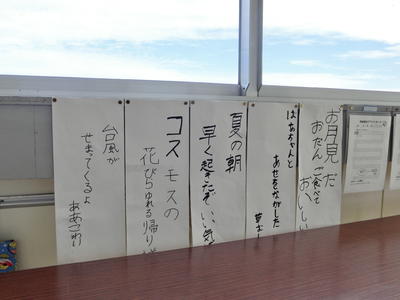 お月見だ
おだんご食べて
おいしい
ばあちゃんと
あせをながした
夏の朝
早く起きたぞ
いい気
コスモスの
花びらゆれる
帰り
台風が
せまってくるよ
ああこわい